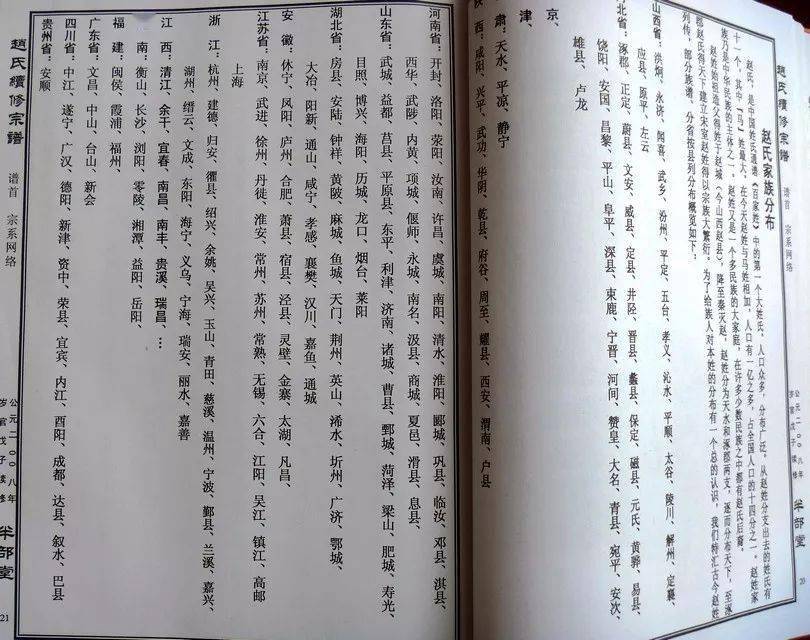 趙氏續修宗譜
谱首
宗系网络
20
公元二〇〇八年
岁官戊子续修
半部堂
赵氏家族分布
赵氏，是中国姓氏通谱《百家姓》中的第一个大姓氏，人口众多，分布广泛，从赵姓分支出去的姓氏有
十一个，其中「马」姓最大，在今天赵姓与马姓相加，人口有一亿之多，占全国人口的十四分之一。赵姓家
族乃是中华民族的主体之一，赵姓又是一个多民族的大家庭，在许多少数民族之中都有赵氏后裔。
赵姓始祖造父得姓于赵城（今山西赵县），降至秦灭赵，赵姓分为天水和涿郡两支，遂而分布天下，至涿
郡赵氏得天下建立宋室赵姓得以宗族大繁衍。为了给族人对本姓的分布有一个总的认识，我们特汇古今赵姓
列传、部分族谱，分省按县列分布概览如下：
山西省：洪炯、永济、闻喜、武乡、汾州、平定、五台、孝义、沁水、平顺、太谷、陵川、解州、定襄、
应县、原平、左云
北省：涿郡、正定、蔚县、文安、威县、定县、井陉、晋县、蠡县、保定、磁县、元氏、黄骅、易县、
饶阳、安国、昌黎、平山、阜平、深县、束鹿、宁晋、河间、赞皇、大名、青县、宛平、安次、
雄县、卢龙
京、
津、
肃：天水、平凉、静宁
西：咸阳、兴平、武功、华阴、乾县、府谷、周至、耀县、西安、渭南、户县
河南省：开封、洛阳、荥阳、汝南、许昌、虞城、南阳、清水、淮阳、郾城、巩县、临汝、邓县、淇县、
西华、武陟、内黄、项城、偃师、永城、南名、汲县、商城、夏邑、滑县、息县、
山东省：武城、益都、莒县、平原县、东平、利津、济南、诸城、曹县、鄄城、菏泽、梁山、肥城、寿光、
目照、博兴、海阳、历城、龙口、烟台、莱阳
湖北省：房县、安陆、钟祥、黄陂、麻城、鱼城、天门、荆州、英山、浠水、圻州、广济、鄂城、
大冶、阳新、通山、咸宁、孝感、襄樊、汉川、嘉鱼、通城
安　徽：休宁、凤阳、庐州、合肥、萧县、宿县、泾县、灵壁、金寨、太湖、凡昌、
江苏省：南京、武进、徐州、丹徒、淮安、常州、苏州、常熟、无锡、六合、江阳、吴江、镇江、高邮
上海
浙　江：杭州、建德、归安、衢县、绍兴、余姚、吴兴、玉山、青田、慈溪、温州、宁波、鄞县、兰溪、嘉兴、
湖州、缙云、文成、东阳、海宁、义乌、宁海、瑞安、丽水、嘉善
江　西：清江、余干、宜春、南昌、南丰、贵溪、瑞昌、…
南：衡山、长沙、浏阳、零陵、湘潭、益阳、岳阳、
福　建：闽侯、霞浦、福州、
广东省：文昌、中山、台山、新会
四川省：中江、遂宁、广汉、德阳、新津、资中、荣县、宜宾、内江、酉阳、成都、达县、叙水、巴县
贵州省：安顺
趙氏續修宗譜
谱首
宗系网络
公元二〇〇八年
岁官戊子续修
半部堂
21